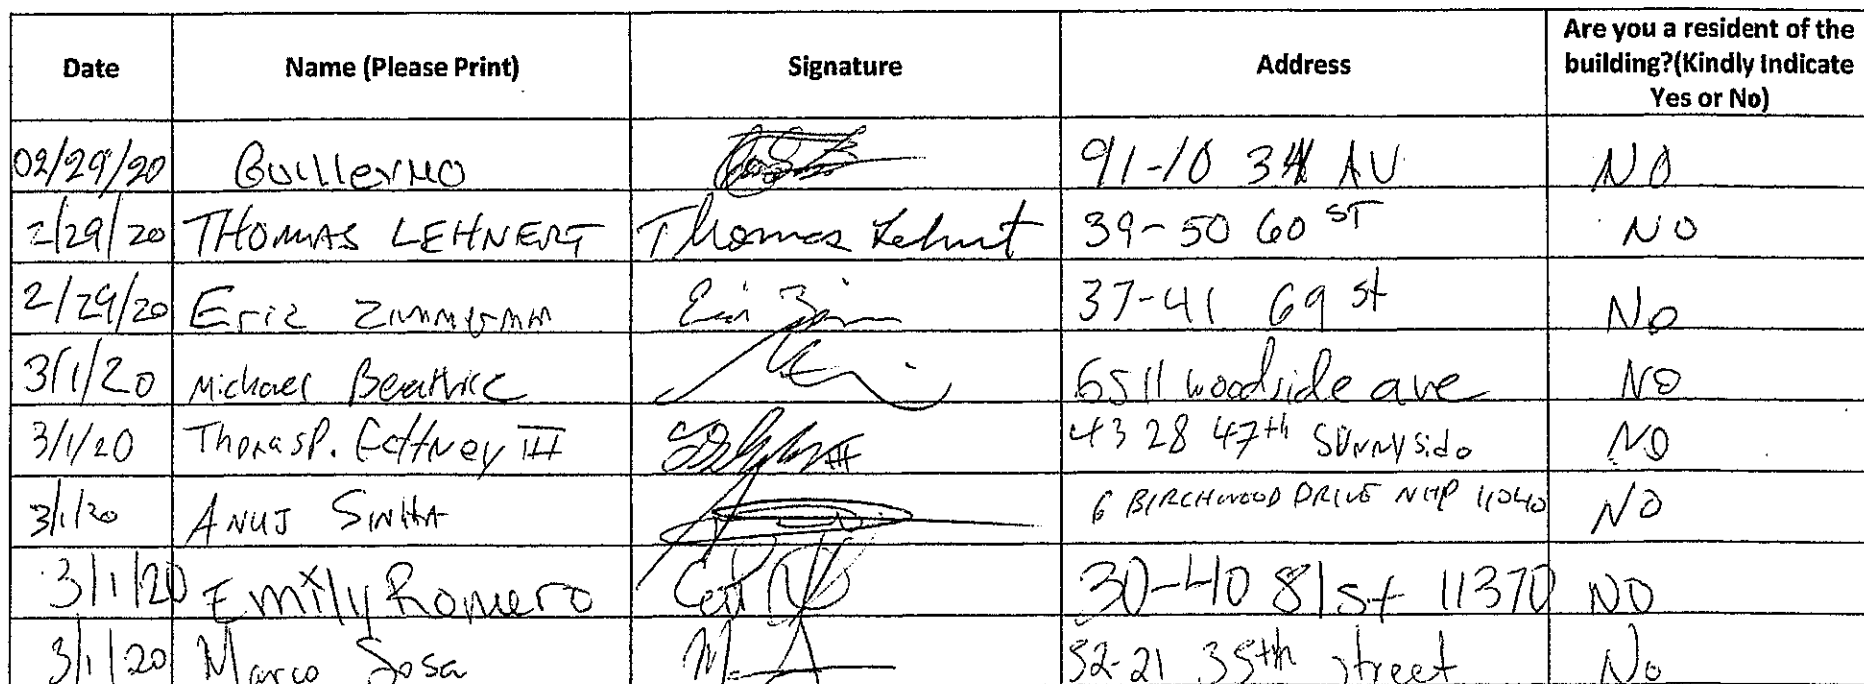 Date Name (Please Print) Signature Address Are you a resident of the building?(Kindly Indicate Yes or No)
02/29/20 Guillermo 91-10 34 AV NO
2/29/20 THOMAS LEHNERT Thomas Lehnert 39-50 60 ST NO
2/29/20 Eric Zimmerman 37-41 69 st No
3/1/20 Michael Beatrice 6511 woodside ave NO
3/1/20 Thomas P. III 43 28 47th Sunnyside NO
3/1/20 ANUJ SINHA 6 BIRCHWOOD DRIVE NHP 11040 NO
3/1/20 Emily Romero 30-40 81st 11370 NO
3/1/20 Marco Sosa 52-21 35th street No